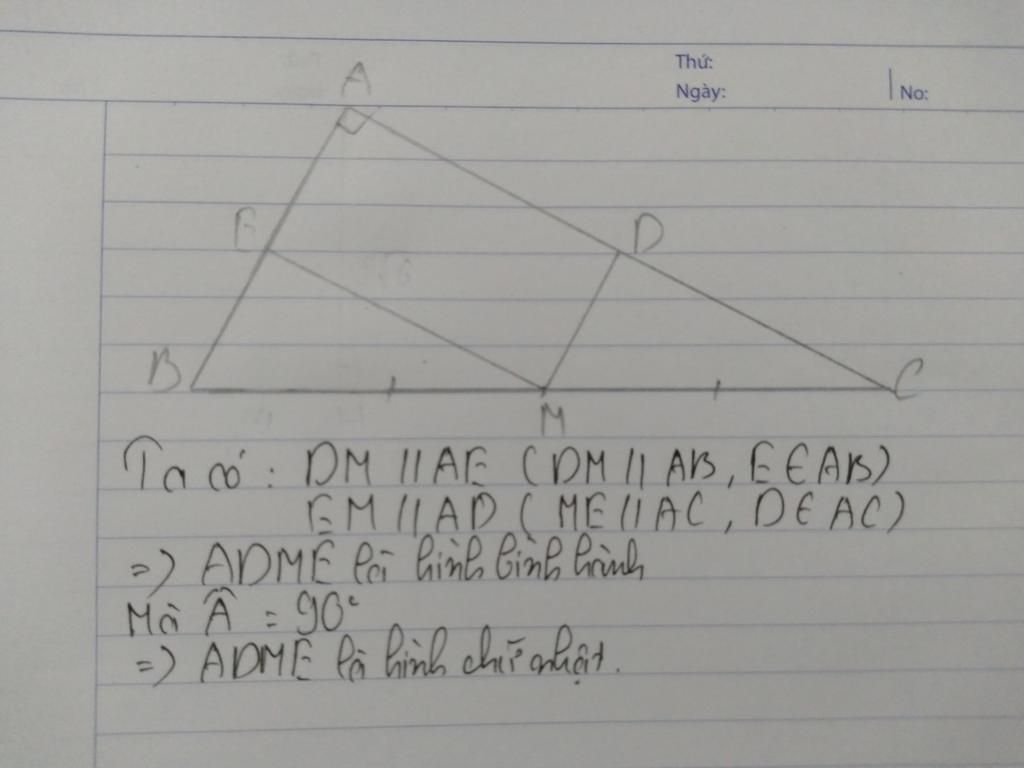 Thứ:
Ngày:
No:
A
E
D
B
M
C
Ta có: DM // AE (DM // AB, E ∈ AB)
EM // AD (ME // AC, D ∈ AC)
=> ADME là hình bình hành
Mà Â = 90°
=> ADME là hình chữ nhật.